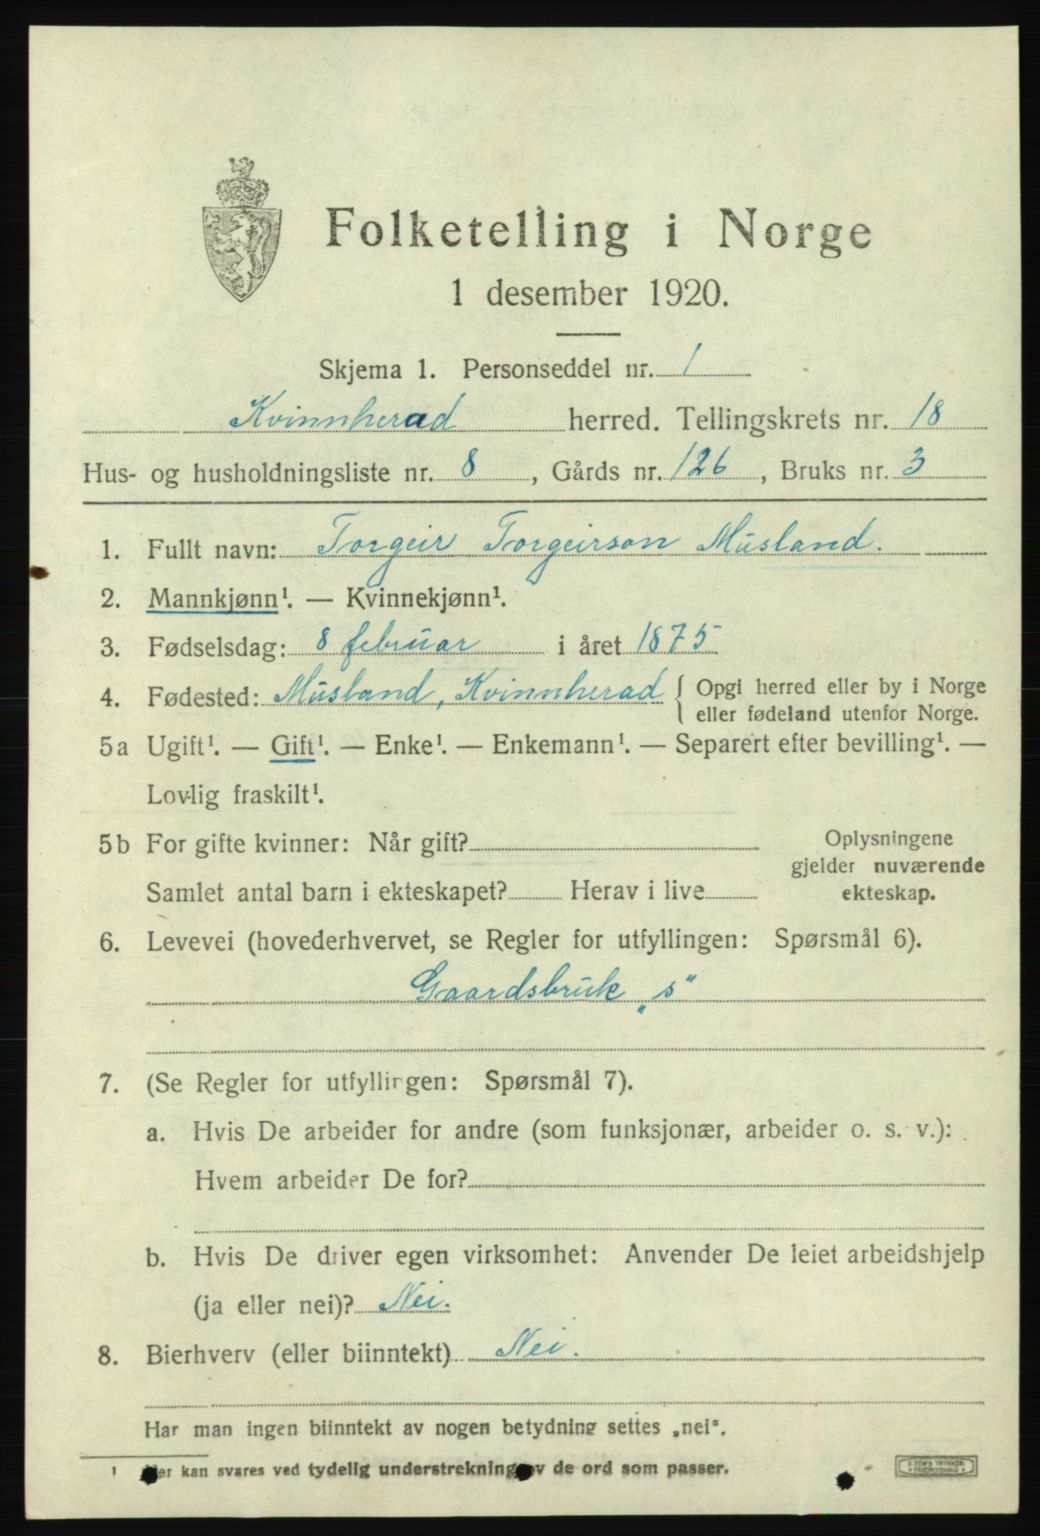 Folketelling i Norge
1 desember 1920.
Skjema 1. Personseddel nr. 1
Kvinnherad herred. Tellingskrets nr. 18
Hus- og husholdningsliste nr. 8, Gårds nr. 126, Bruks nr. 3
1. Fullt navn: Torgeir Torgeirson Musland.
2. Mannkjønn¹. — Kvinnekjønn¹.
3. Fødselsdag: 8 februar i året 1875
4. Fødested: Musland, Kvinnherad { Opgi herred eller by i Norge
eller fødeland utenfor Norge.
5a Ugift¹. — Gift¹. — Enke¹. — Enkemann¹. — Separert efter bevilling¹. —
Lovlig fraskilt¹.
5b For gifte kvinner: Når gift?
Samlet antal barn i ekteskapet? Herav i live
Oplysningene
gjelder nuværende
ekteskap.
6. Levevei (hovederhvervet, se Regler for utfyllingen: Spørsmål 6).
Gaardsbruk „s"
7. (Se Regler for utfyllingen: Spørsmål 7).
a. Hvis De arbeider for andre (som funksjonær, arbeider o. s. v.):
Hvem arbeider De for?
b. Hvis De driver egen virksomhet: Anvender De leiet arbeidshjelp
(ja eller nei)? Nei.
8. Bierhverv (eller biinntekt) Nei.
Har man ingen biinntekt av nogen betydning settes „nei".
¹ Her kan svares ved tydelig understrekning av de ord som passer.